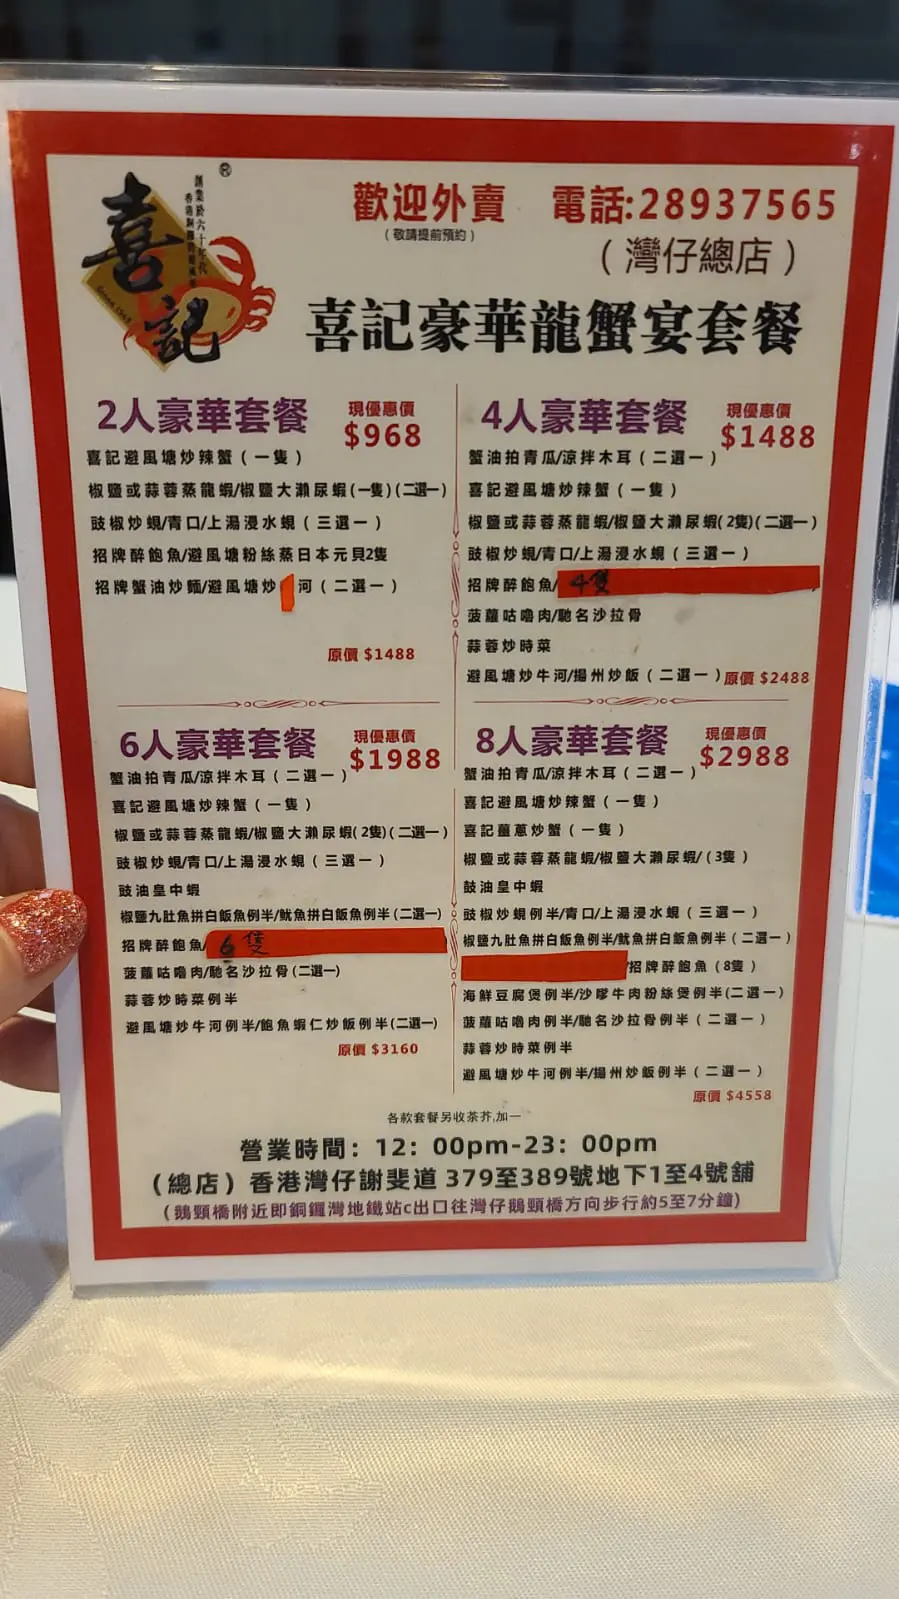 喜記
®
創業於六十年代
Since 1965
歡迎外賣
(敬請提前預約)
電話:28937565
(灣仔總店)
喜記豪華龍蟹宴套餐
2人豪華套餐
現優惠價
$968
喜記避風塘炒辣蟹(一隻)
椒鹽或蒜蓉蒸龍蝦/椒鹽大瀨尿蝦(一隻)(二選一)
豉椒炒蜆/青口/上湯浸水蜆(三選一)
招牌醉鮑魚/避風塘粉絲蒸日本元貝2隻
招牌蟹油炒麵/避風塘炒 河(二選一)
原價 $1488
4人豪華套餐
現優惠價
$1488
蟹油拍青瓜/涼拌木耳(二選一)
喜記避風塘炒辣蟹(一隻)
椒鹽或蒜蓉蒸龍蝦/椒鹽大瀨尿蝦(2隻)(二選一)
豉椒炒蜆/青口/上湯浸水蜆(三選一)
招牌醉鮑魚/ 4隻
菠蘿咕嚕肉/馳名沙拉骨
蒜蓉炒時菜
避風塘炒牛河/揚州炒飯(二選一)
原價 $2488
6人豪華套餐
現優惠價
$1988
蟹油拍青瓜/涼拌木耳(二選一)
喜記避風塘炒辣蟹(一隻)
椒鹽或蒜蓉蒸龍蝦/椒鹽大瀨尿蝦(2隻)(二選一)
豉椒炒蜆/青口/上湯浸水蜆(三選一)
豉油皇中蝦
椒鹽九肚魚拼白飯魚例半/魷魚拼白飯魚例半(二選一)
招牌醉鮑魚/ 6隻
菠蘿咕嚕肉/馳名沙拉骨(二選一)
蒜蓉炒時菜例半
避風塘炒牛河例半/鮑魚蝦仁炒飯例半(二選一)
原價 $3160
8人豪華套餐
現優惠價
$2988
蟹油拍青瓜/涼拌木耳(二選一)
喜記避風塘炒辣蟹(一隻)
喜記薑蔥炒蟹(一隻)
椒鹽或蒜蓉蒸龍蝦/椒鹽大瀨尿蝦/(3隻)
豉油皇中蝦
豉椒炒蜆例半/青口/上湯浸水蜆(三選一)
椒鹽九肚魚拼白飯魚例半/魷魚拼白飯魚例半(二選一)
/招牌醉鮑魚(8隻)
海鮮豆腐煲例半/沙嗲牛肉粉絲煲例半(二選一)
菠蘿咕嚕肉例半/馳名沙拉骨例半(二選一)
蒜蓉炒時菜例半
避風塘炒牛河例半/揚州炒飯例半(二選一)
原價 $4558
各款套餐另收茶芥,加一
營業時間:12:00pm-23:00pm
(總店)香港灣仔謝斐道 379至389號地下1至4號舖
(鵝頸橋附近即銅鑼灣地鐵站c出口往灣仔鵝頸橋方向步行約5至7分鐘)